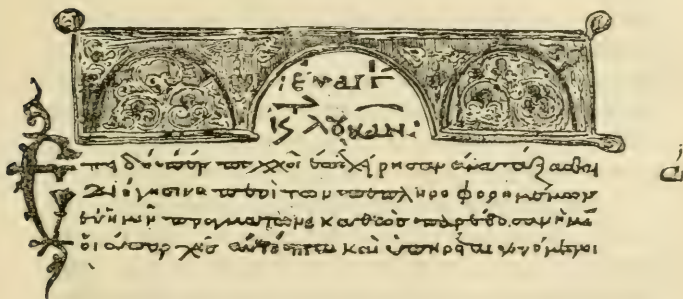 εὐαγγ
λουκᾶν:
Ἐπειδήπερ πολλοὶ ἐπεχείρησαν ἀνατάξασθαι
διήγησιν περὶ τῶν πεπληροφορημένων
ἐν ἡμῖν πραγμάτων καθὼς παρέδοσαν ἡμῖν
οἱ ἀπαρχῆς αὐτόπται καὶ ὑπηρέται γενόμενοι